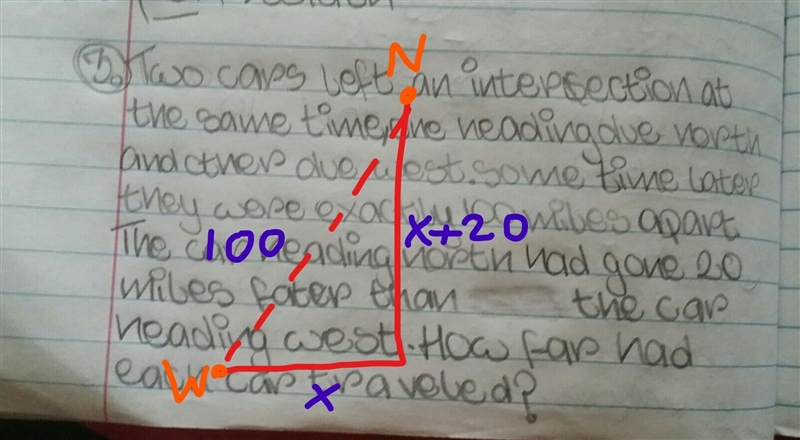 N
3. Two cars left an intersection at
the same time, one heading due north
and other due west. some time later
they were exactly 100 miles apart
100 x+20
The car heading north had gone 20
miles fater than the car
heading west. How far had
W
each car traveled?
x